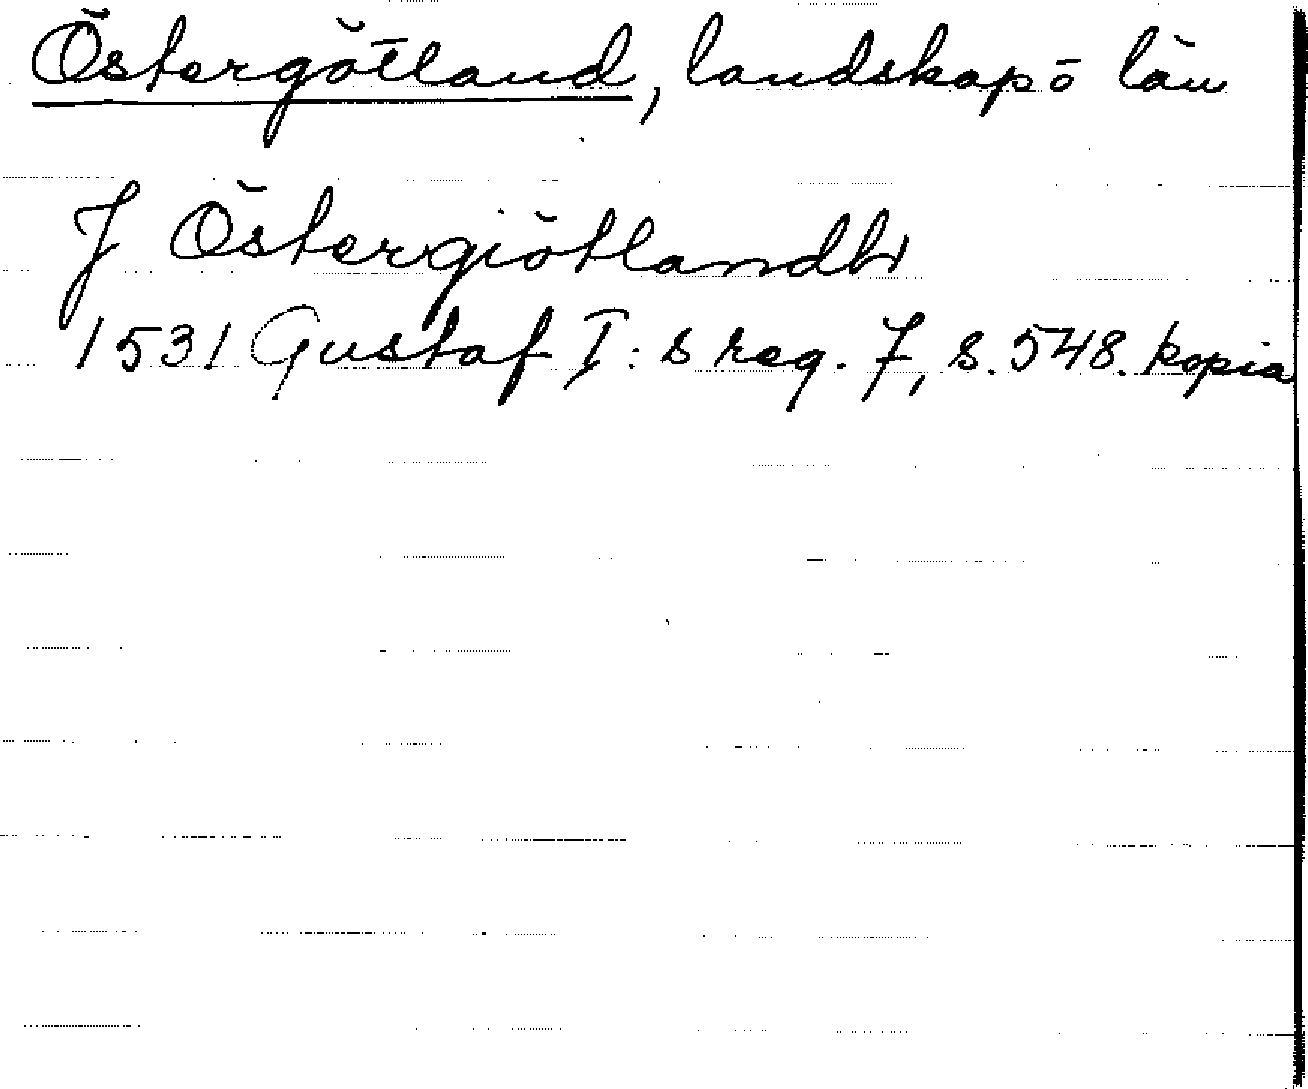 Östergötland, landskap o län
J Östergiötlandh
1531 Gustaf I:s reg. 7, s. 548. kopia